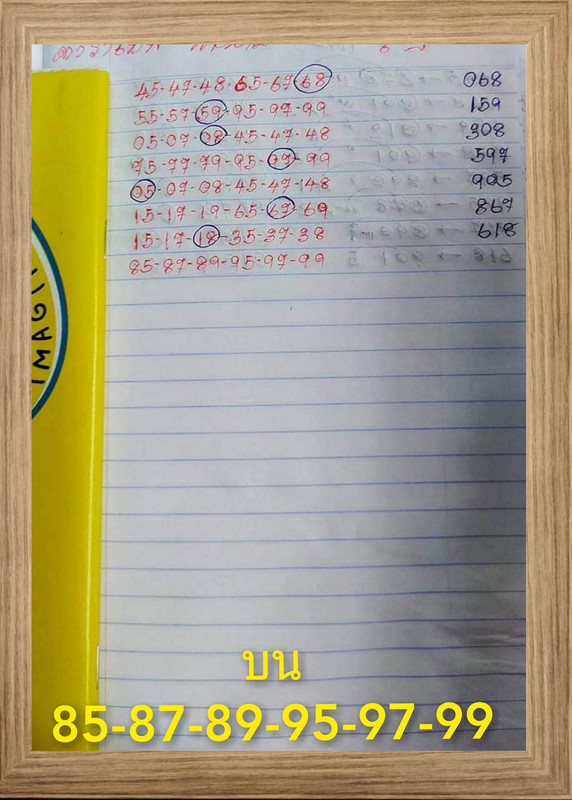 45-47-48-65-67-68 068
55-57-59-95-97-99 159
05-07-08-45-47-48 308
75-77-79-95-97-99 597
05-07-08-45-47-48 905
15-17-19-65-67-69 867
15-17-18-35-37-38 618
85-87-89-95-97-99
IMAGI
บน
85-87-89-95-97-99